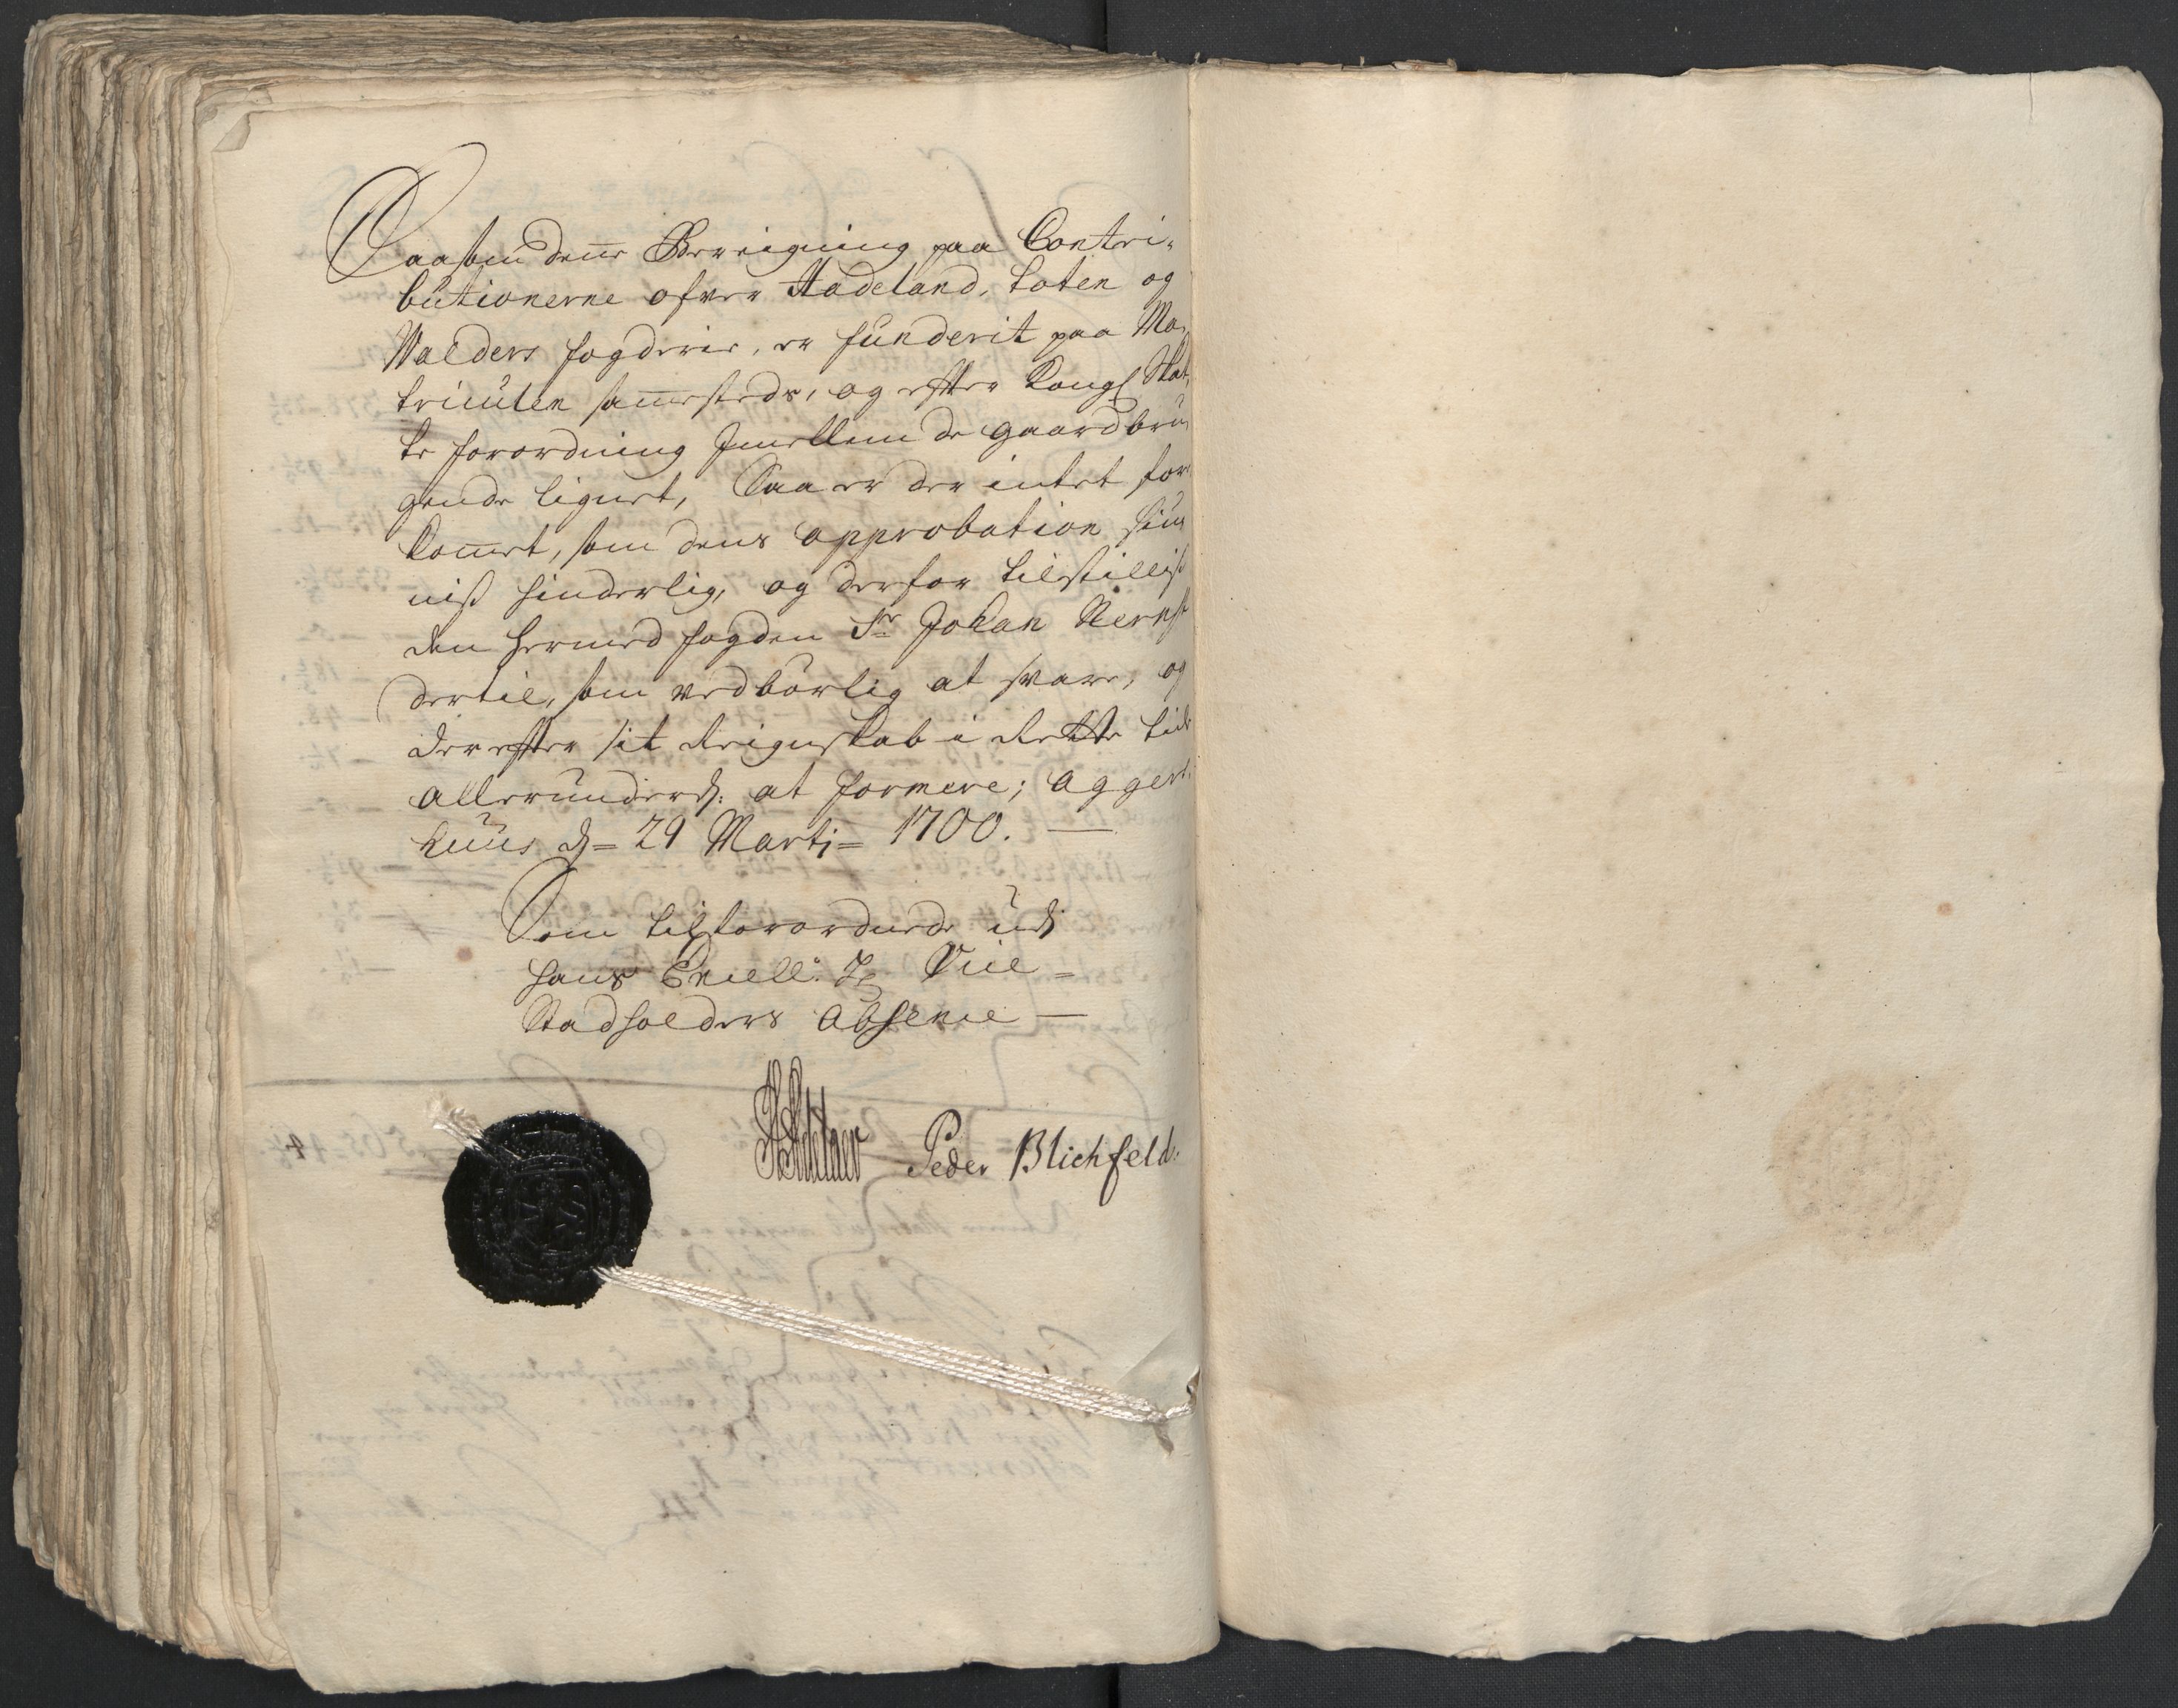 Saasom denne Bereigning paa Contri-
butionerne ofver Hadeland, Toten og
Walders fogderie, er funderit paa Ma-
triculen sammesteds, og efter Kongl Skat-
te forordning Imellem de gaardbru-
gende lignet, Saa er der intet for-
kommet, som dens approbation
hinderlig, og derfor tilstillist
den hermed fogden Sr Johan
dertil, som vedbørlig at svare, og
derefter sit Reignskab i Rette tide
allerunderd: at formere; Agger-
huus d= 29 Martj= 1700. —
Som tilforordnede udj
hans Excell: H Vice-
Stadholders Absence —
Peder Blichfeld.